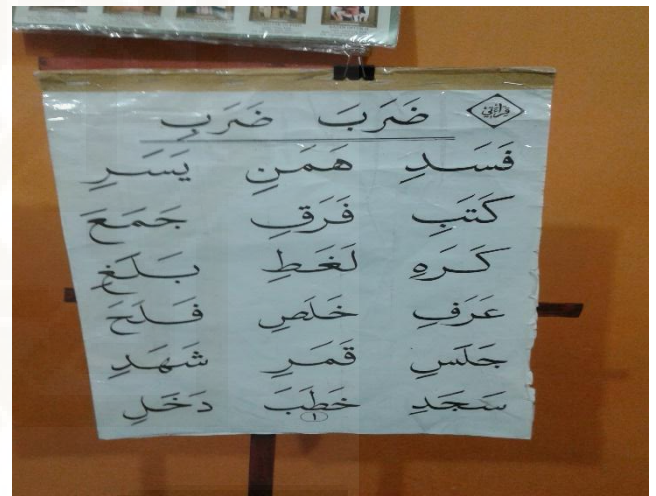 قرآءتي
ضَرَبَ ضَرَبِ
فَسَدِ هَمَنِ يَسَرِ
كَتَبِ فَرَقِ جَمَعَ
كَرَهِ لَغَطِ بَلَغِ
عَرَفِ خَلَصِ فَلَحَ
جَلَسِ قَمَرِ شَهَدِ
سَجَدِ خَطَبَ دَخَلِ
١